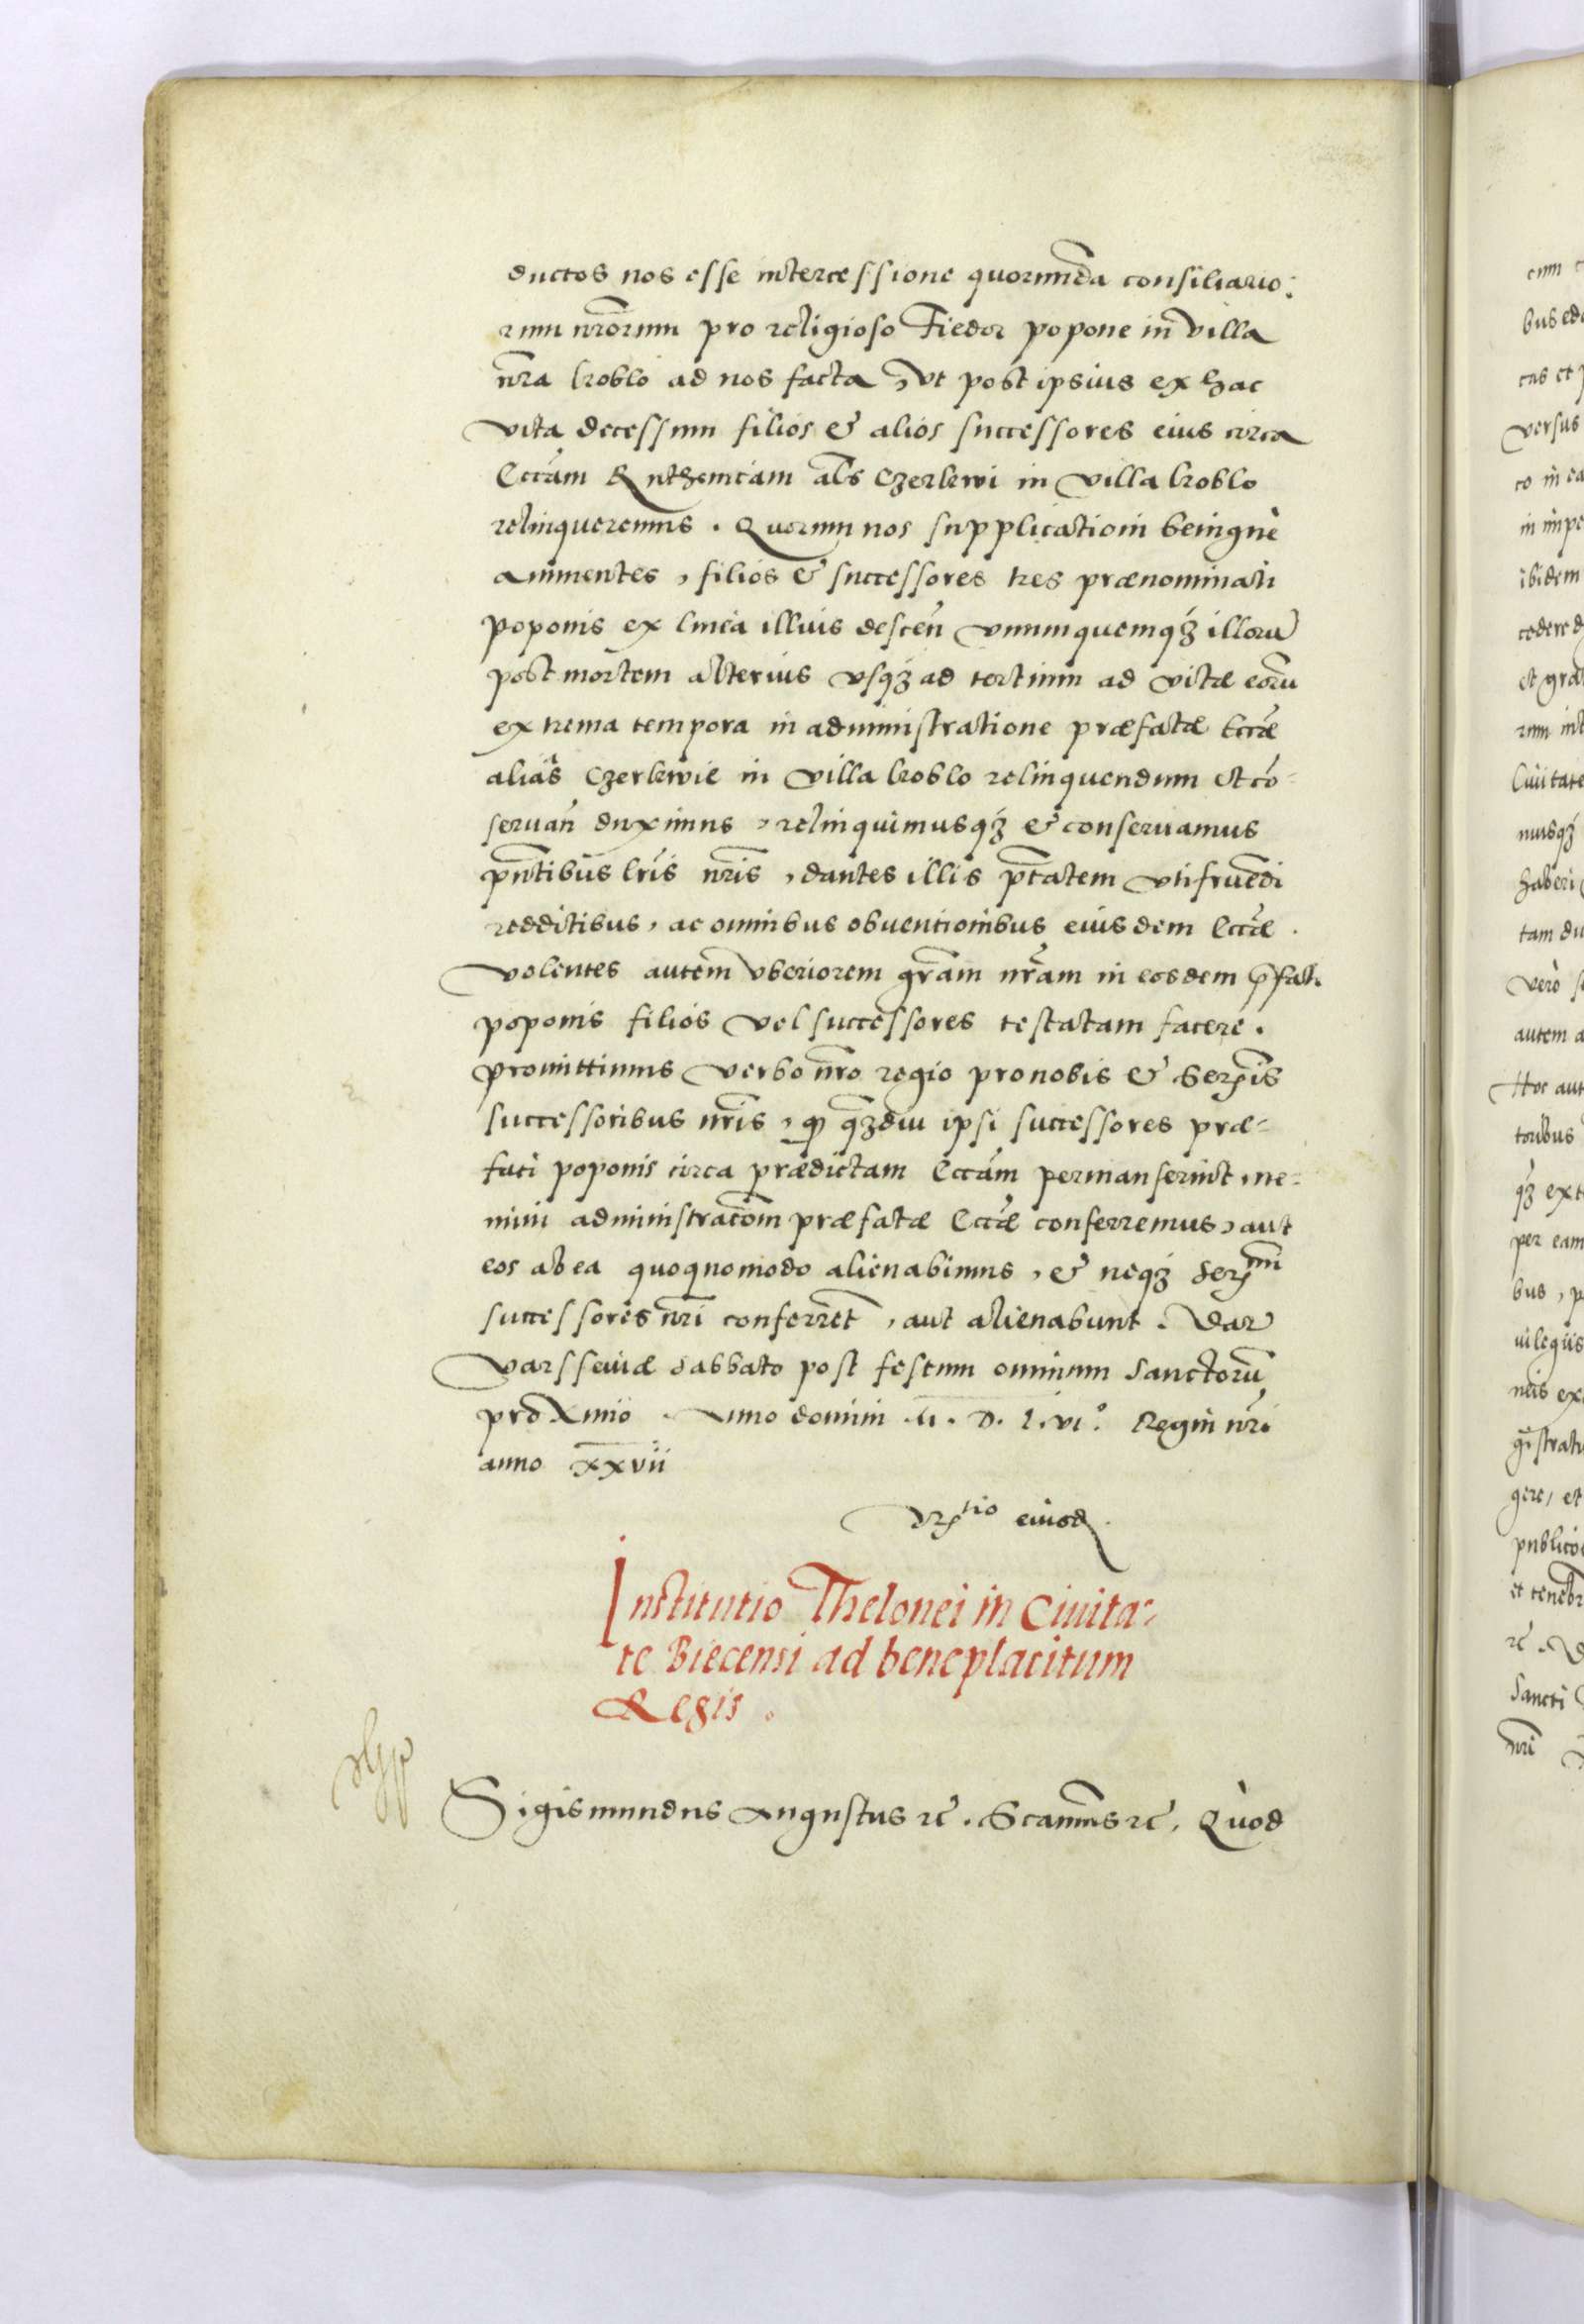 ductos nos esse intercessione quorunda consiliario:
rum nrorum pro religioso Fiedor popone in villa
nra koblo ad nos facta, vt post ipsius ex hac
vita decessum filios & alios successores eius circa
Eccam Ruthenicam als Czerkwi in villa koblo
relinqueremus. Quorum nos supplicationi benigne
annuentes, filios & successores tres prænominati
poponis ex linea illius descen vnumquemqz illoru
post mortem alterius vsqz ad tertium ad vitæ eoru
extrema tempora in administratione præfatæ Eccæ
alias Czerkwie in villa koblo relinquendum et co-
seruan duximus, relinquimusqz & conseruamus
pntibus lris nris, dantes illis ptatem vtifruendi
redditibus, ac omnibus obuentionibus eiusdem Eccæ.
volentes autem vberiorem gram nram in eosdem pfati
poponis filios vel successores testatam facere.
promittimus verbo nro regio pro nobis & Serxis
successoribus nris, qp qzdiu ipsi successores præ-
fati poponis circa prædictam Eccam permanserint, ne-
mini administracom præfatæ Eccæ conferremus, aut
eos ab ea quoquomodo alienabimus, & neqz Serxmi
successores nri conferret, aut alienabunt. Dat
varsseuiæ sabbato post festum omnium sanctoru
proximo. Anno domini .M. D. L. vi.° Regni nri
anno xxvii
Rxtio eiusd.
Institutio Thelonei in Ciuita-
te Biecensi ad beneplacitum
Regis.
Sigismundus Augustus rc. Scammus rc. Quod
cum
bus ed
tas et p
versus
co in ea
in impe
ibidem
cedere d
et grat
rum int
Ciuitate
musqz
haberi
tam du
vero s
autem a
Hoc aut
toribus
qz ext
per eam
bus, p
uilegiis
neis ex
gistratu
gere, et
publico
et teneb
re. D
sancti
nri